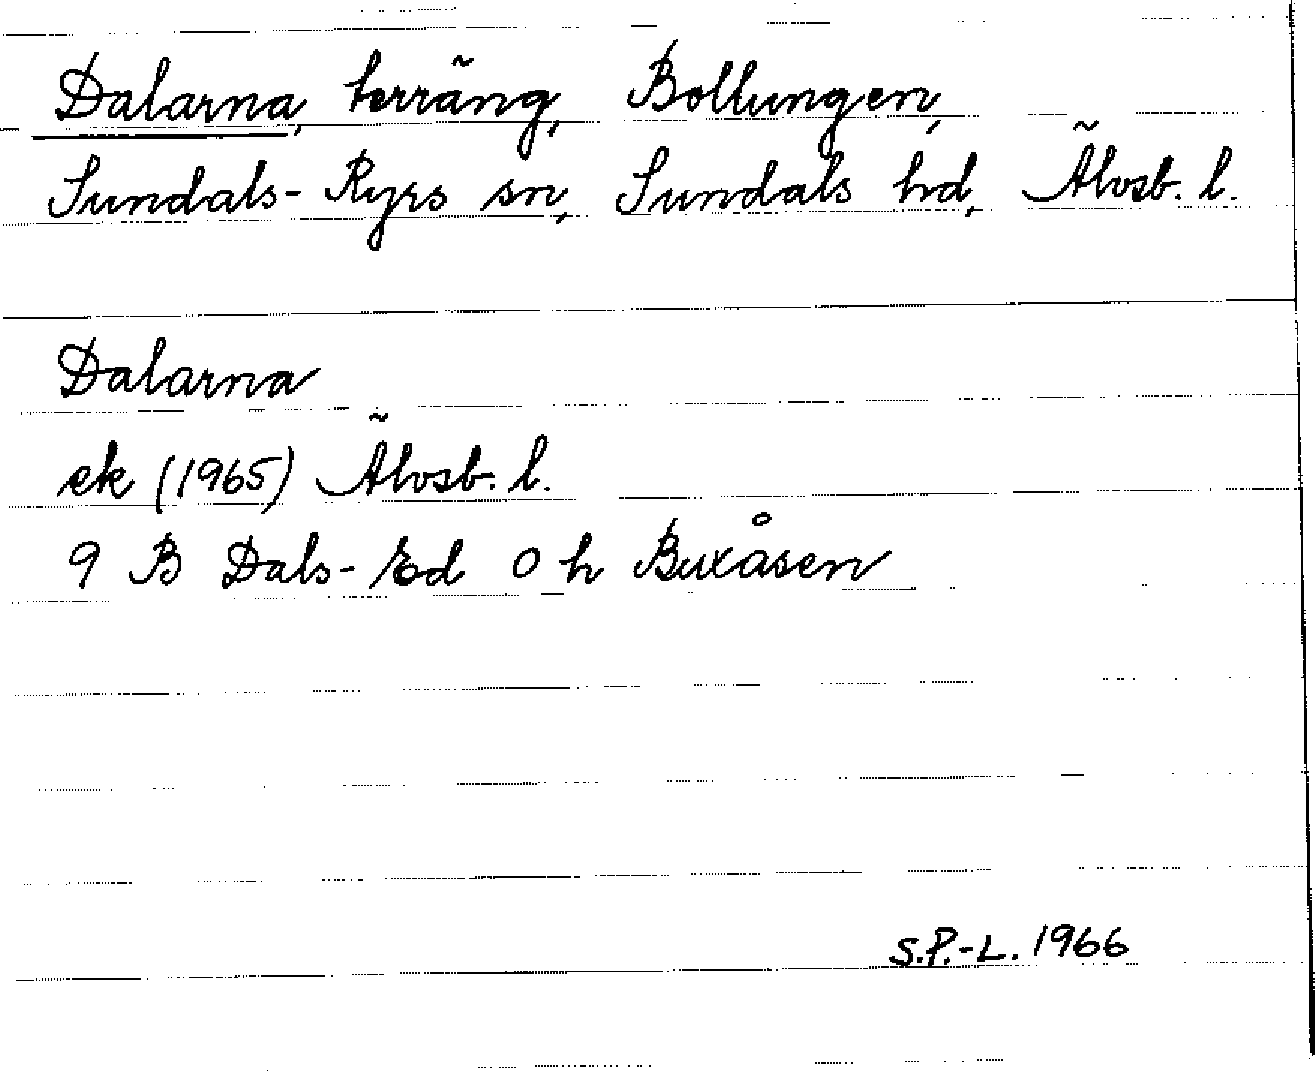 Dalarna, terräng, Bollungen,
Sundals-Ryrs sn, Sundals hd, Älvsb. l.
Dalarna
ek (1965) Älvsb. l.
9 B Dals-Ed 0 h Buxåsen
S.P.-L. 1966